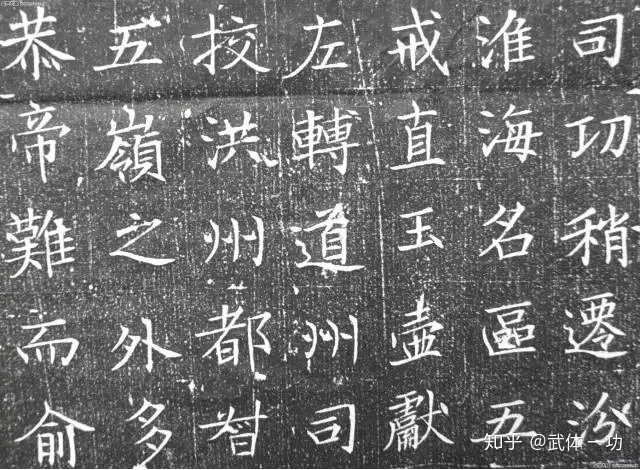 司功稍遷汾
淮海名區五
戒直玉壺獻
左轉道州司
挍洪州都督
五嶺之外多
恭帝難而俞
知乎 @武体一功